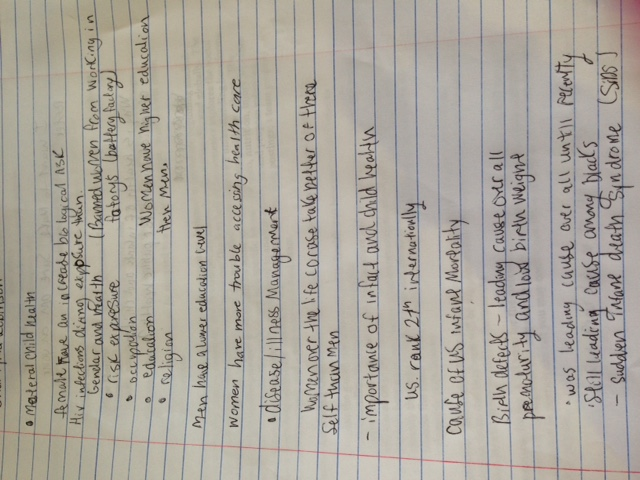 • Materal Child health
female have an increase biological risk
Hiv infections during exposure than.
Gendar and Health (Banned women from working in
• risk expresure fatorys (battery factory)
• occupation
• education women have higher education
• religion then men.
Men have a lower education level
women have more trouble accessing health care
• disease/illness Management
women over the life corase take better of there
self than men
- importance of infact and child health
US. rank 27th internationally
cause of US infant Mortality
Birth defects - leading cause over all
prematurity and low birth weight
• was leading cause over all until recently
• Still leading cause among blacks
- Sudden infane death Syndrome (SIDS)